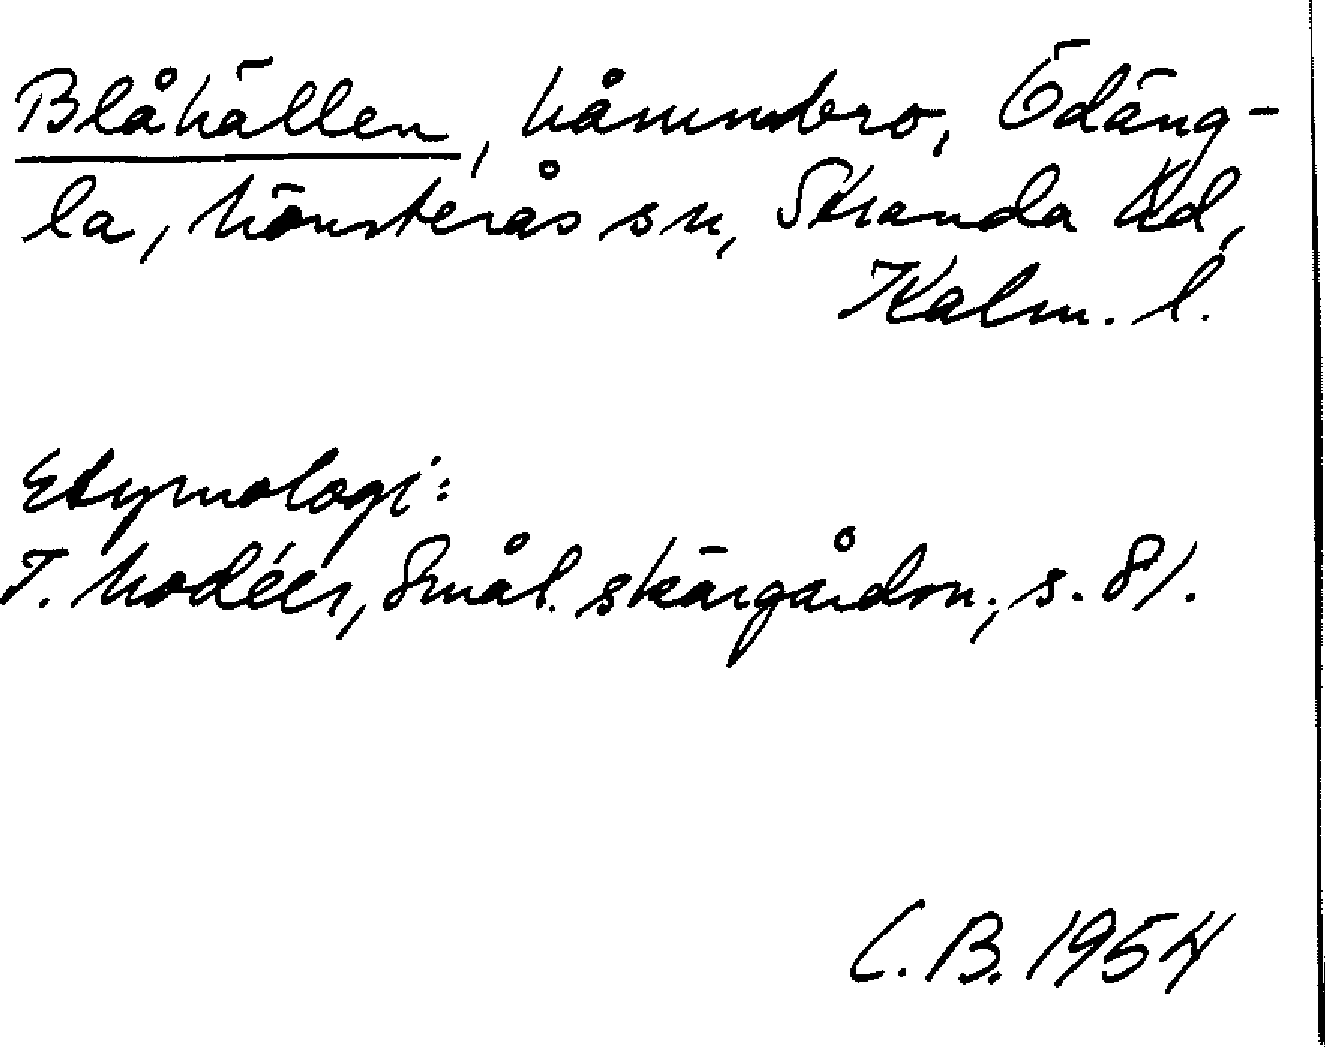 Blåhällen, Ödäng-
la, Mönsterås sn, Stranda hd,
Kalm. l.
Etymologi:
T. Modéer, Smål. skärgårdsn., s. 81.
C. B. 1954